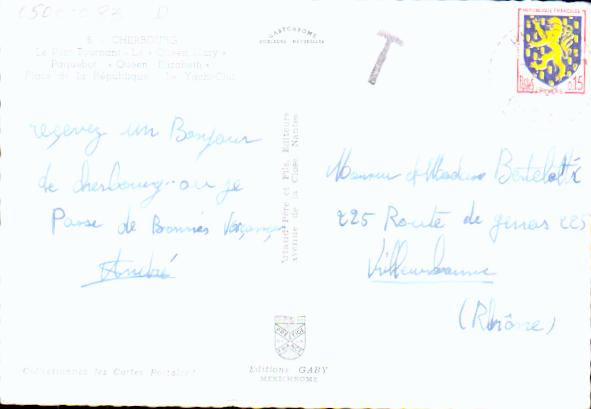 8. - CHERBOURG
Le Pont Tournant - Le « Queen Mary »
Paquebot « Queen Elizabeth »
Place de la République - Le Yacht-Club
GABYCHROME
REPUBLIQUE FRANÇAISE
0,15
T
recevez un Bonjour
de cherbourg.. ou je
Passe de Bonnes Vacances
André
Artaud Père et Fils, Editeurs
avenue de la Close, Nantes
Monsieur et Madame
225 Route de genas 225
Villeurbanne
(Rhône)
Collectionnez les Cartes Postales !
Editions GABY
MEXICHROME